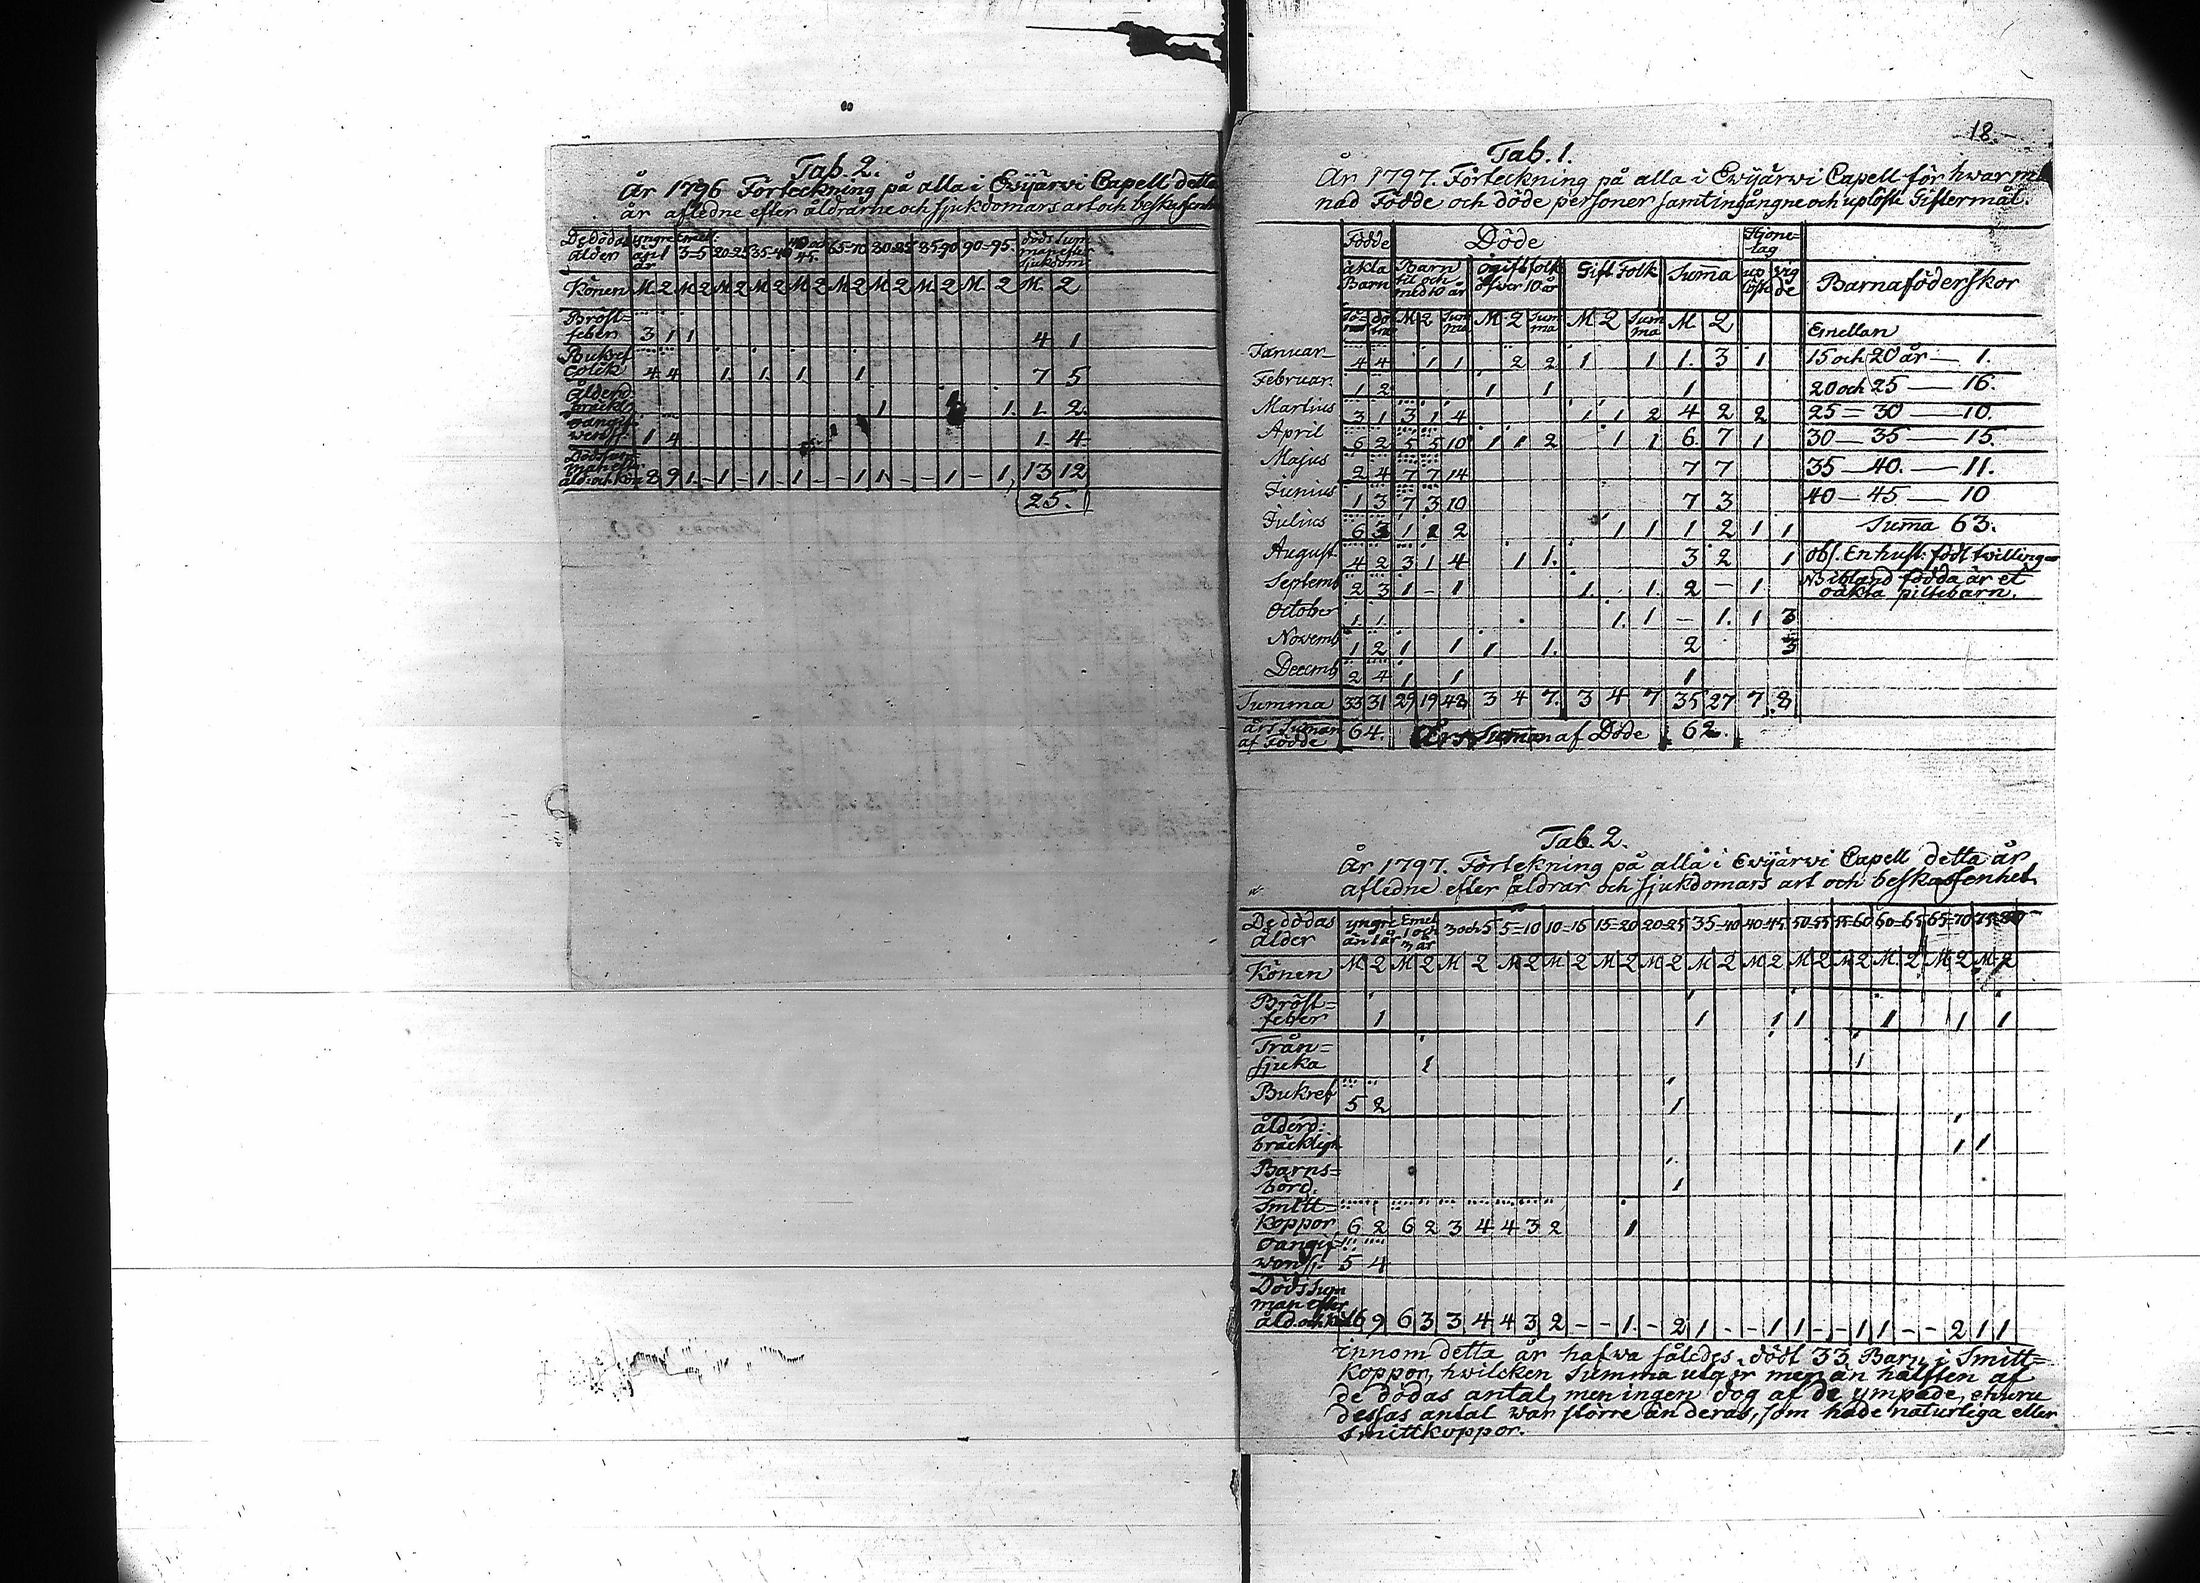 Tab. 2.
År 1796 Förteckning på alla i Ewijärwi Capell detta
år afledne efter åldrarne och sjukdomars art och beskaffenhet
De dödas ålder yngre än 1 år Emell. 3-5 20-25 35-40 40 och 45. 65-70 80-85 85-90 90-95. döds Summan efter sjukdom
Könen M 2 M 2 M 2 M 2 M 2 M 2 M 2 M 2 M 2 M. 2
Bröst=
feber 3 1 1 4 1
Bukref
Colik 4 4 1. 1. 1 1 7 5
Ålderd.
bräckl. 1 1. 1. 2.
oangif-
wen sj. 1 4 1. 4
Dödssum-
man efter
åld: och kön 8 9 1 - 1 - 1 - 1 - - 1 1 - - 1 - 1 13 12
25.
18.
Tab. 1.
År 1797. Förteckning på alla i Ewijärwi Capell för hwar må
nad Födde och döde personer samt ingångne och uplöste Giftermål.
Födde Döde Hjone-
lag
äkta Barn Barn til och med 10 år ogift folk öfwer 10 år Gift Folk Summa up löste wig de Barnaföderskor
Sö-ner dö-ttrar M 2 Summa M 2 Summa M 2 Summa M 2 Emellan
Januar 4 4 1 1 2 2 1 1 1. 3 1 15 och 20 år — 1.
Februar. 1 2 1 1 1 20 och 25 — 16.
Martius 3 1 3 1 4 1 1 2 4 2 2 25 = 30 — 10.
April 6 2 5 5 10 1 1 2 1 1 6. 7 1 30 — 35 — 15.
Majus 2 4 7 7 14 7 7 35 — 40. — 11.
Junius 1 3 7 3 10 7 3 40 — 45 — 10
Julius 6 3 1 1 2 1 1 1 2 1 1 Summa 63.
August 4 2 3 1 4 1 1. 3 2 1 Obs. En hust: födt twillingar
Septemb 2 3 1 - 1 1 1. 2 - 1 NB ibland födda är et
oäkta piltebarn.
October 1 1 1. 1 - 1. 1 3
Novemb 1 2 1 1 1 1. 2 3
Decemb 2 4 1 1 1
Summa 33 31 29 19 48 3 4 7. 3 4 7 35 27 7 8
års Summan
af Födde 64. Års Summan af Döde 62.
Tab. 2.
År 1797. Förtekning på alla i Ewijärwi Capell detta år
afledne efter åldrar och sjukdomars art och beskaffenhet
De dödas ålder yngre än 1 år Emel 1 och 3 år 3 och 5 5=10 10=15 15=20 20=25 35=40 40=45. 50=55 55=60 60=65 65=70 75=80
Könen M 2 M 2 M 2 M 2 M 2 M 2 M 2 M 2 M 2 M 2 M 2 M 2 M 2 M 2
Bröst=
feber 1 1 1 1 1 1 1
Trån=
sjuka 1 1
Bukref 5 2 1
ålderd:
bräckligh 1 1
Barns=
börd. 1
Smitt=
koppor 6 2 6 2 3 4 4 3 2 1
oangif-
wen sj. 5 4
Döds sum
man efter
åld. och kön 16 9 6 3 3 4 4 3 2 - - 1. - 2 1 - - 1 1 - - 1 1 - - 2 1 1
innom detta år hafwa således dödt 33 Barn i Smitt=
koppor, hwilcken Summa utgör mer än hälften af
de dödas antal, men ingen dog af de ympade, ehuru
dessas antal war större än deras, som hade naturliga eller
Smittkoppor.